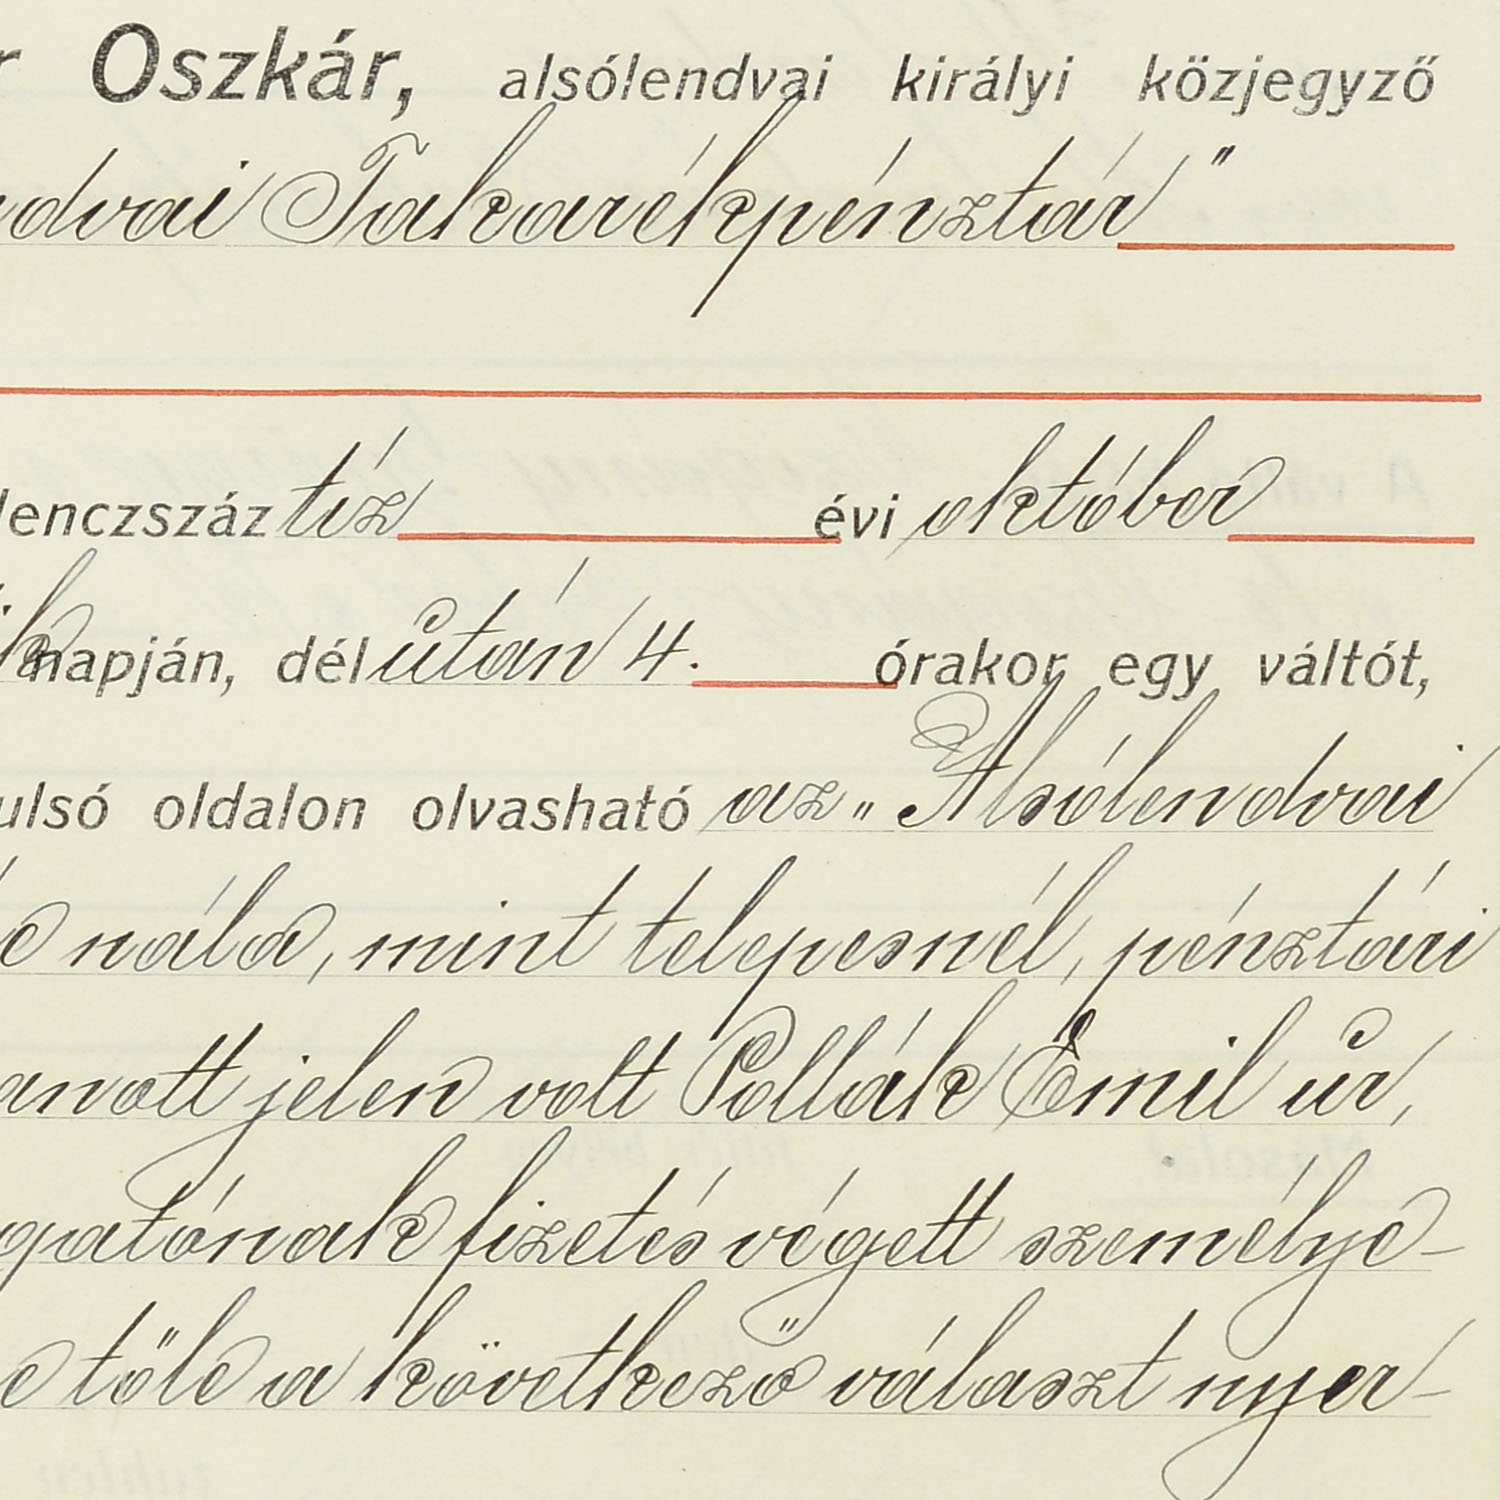 r Oszkár, alsólendvai királyi közjegyző
ndvai Takarékpénztár"
lenczszáz tíz évi október
ik napján, délután 4. órakor egy váltót,
ulsó oldalon olvasható az „Alsólendvai
e nála, mint telepesnél, pénztári
anott jelen volt Pollák Emil úr,
gatónak fizetés végett személye-
e tőle a következő választ nyer-